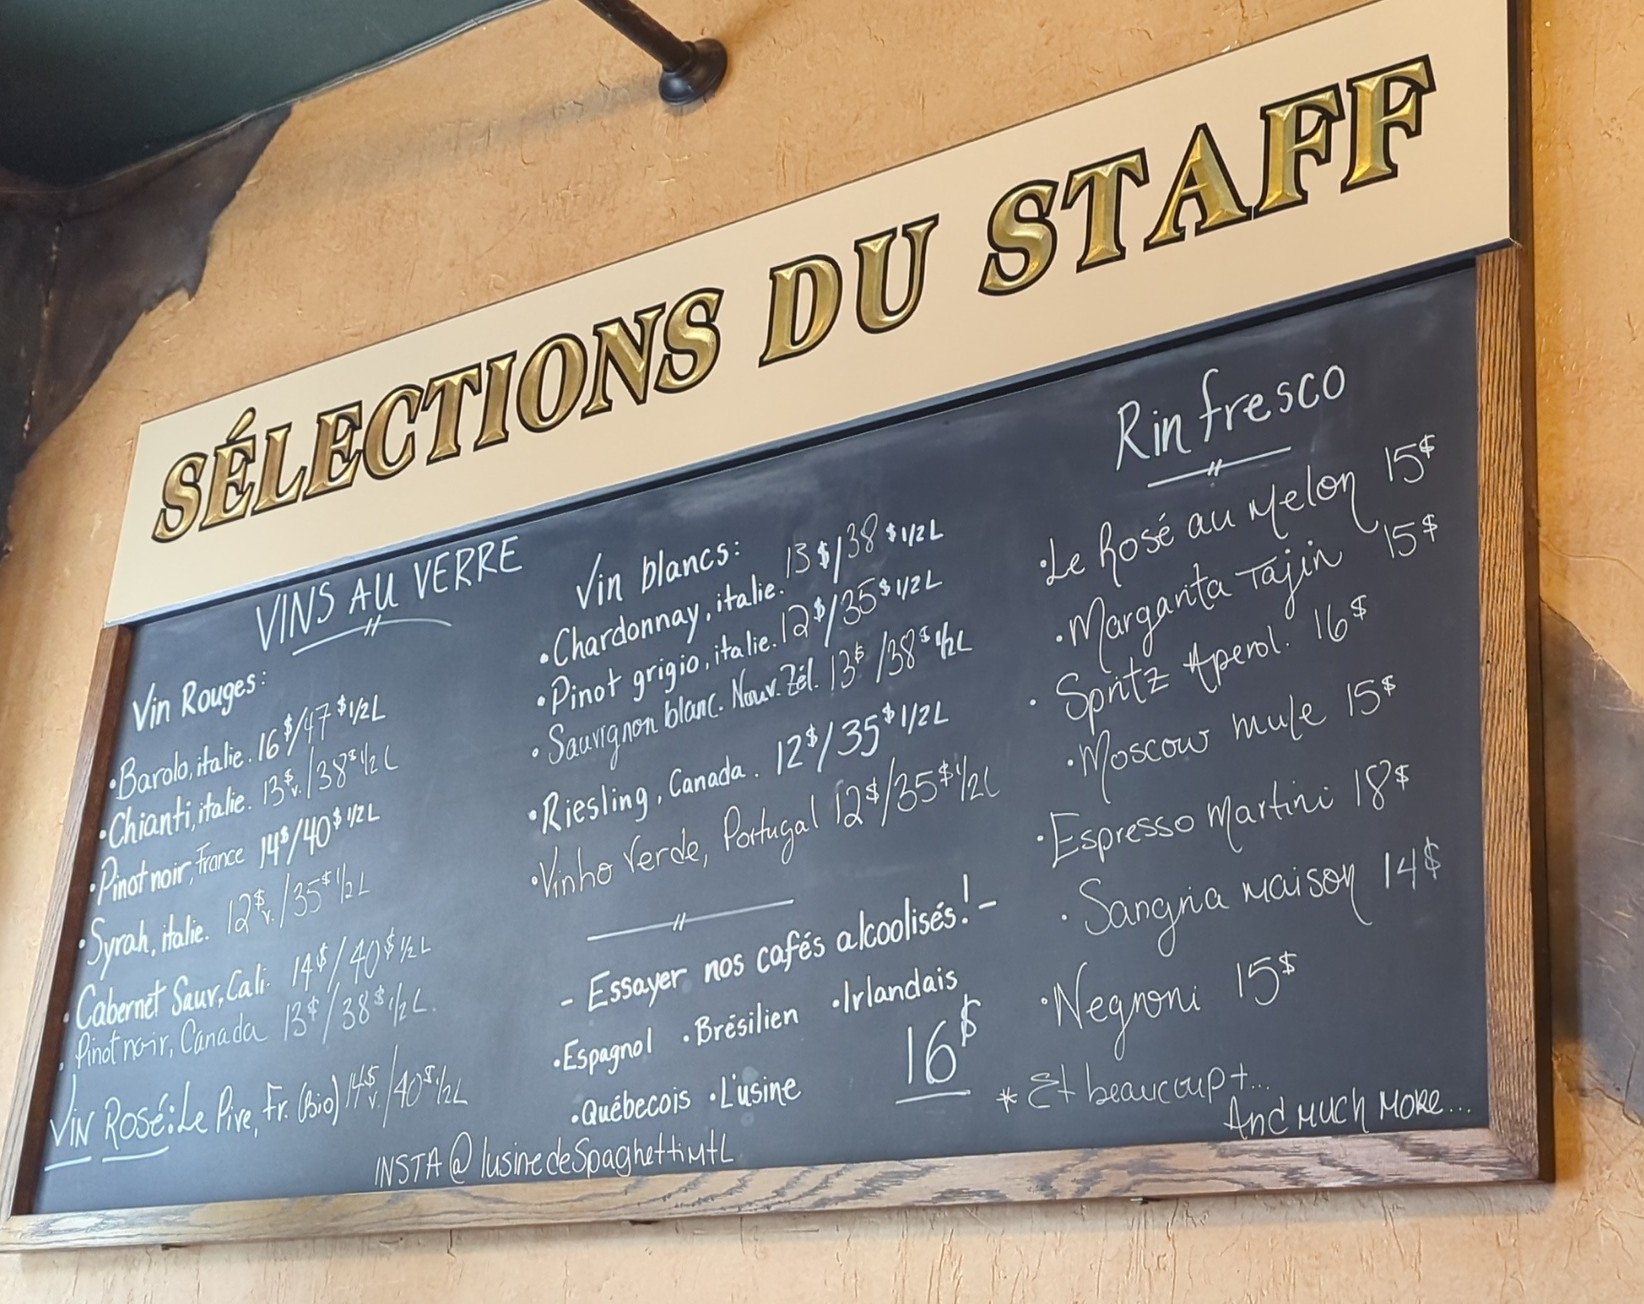 SÉLECTIONS DU STAFF
VINS AU VERRE
Vin Rouges:
•Barolo, italie. 16$/47$ 1/2L
•Chianti, italie. 13$v./38$ 1/2L
•Pinot noir, France 14$/40$ 1/2L
•Syrah, italie. 12$v./35$ 1/2L
•Cabernet Sauv, Cali. 14$/40$ 1/2L
•Pinot noir, Canada 13$/38$ 1/2L.
Vin Rosé: Le Pive, Fr. (Bio) 14$v./40$ 1/2L
Vin blancs:
•Chardonnay, italie. 13$/38$ 1/2L
•Pinot grigio, italie. 12$/35$ 1/2L
•Sauvignon blanc. Nouv. Zél. 13$/38$ 1/2L
•Riesling, Canada. 12$/35$ 1/2L
•Vinho Verde, Portugal 12$/35$ 1/2L
- Essayer nos cafés alcoolisés! -
•Espagnol •Brésilien •Irlandais
•Québecois •L'usine
16$
INSTA @ lusinedeSpaghettiMtL
Rinfresco
•Le Rosé au Melon 15$
•Margarita Tajin 15$
•Spritz Aperol. 16$
•Moscow mule 15$
•Espresso Martini 18$
•Sangria maison 14$
•Negroni 15$
* Et beaucoup +...
And Much More...